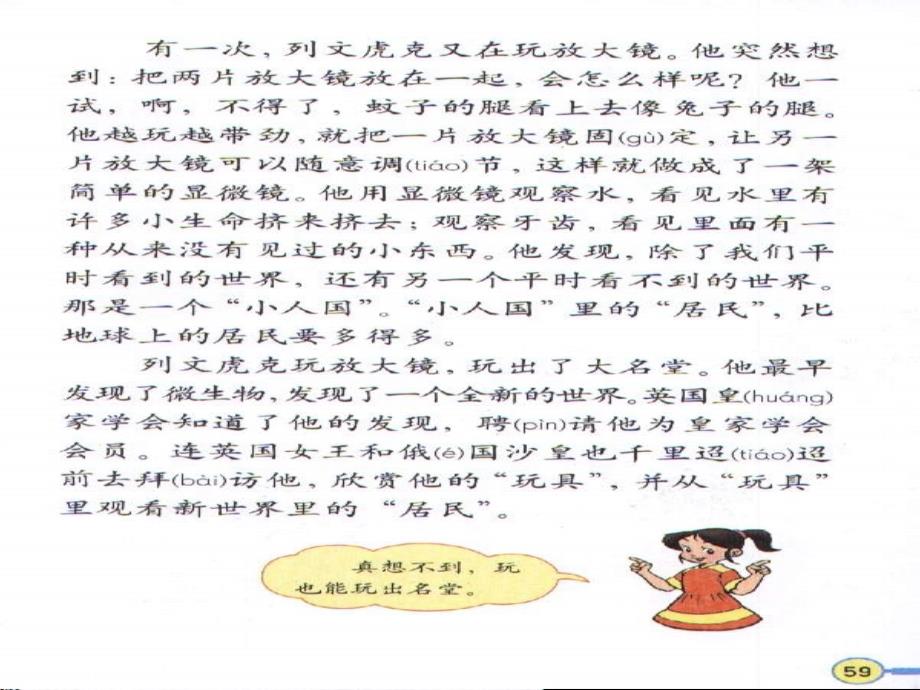 有一次，列文虎克又在玩放大镜。他突然想
到：把两片放大镜放在一起，会怎么样呢？他一
试，啊，不得了，蚊子的腿看上去像兔子的腿。
他越玩越带劲，就把一片放大镜固(gù)定，让另一
片放大镜可以随意调(tiáo)节，这样就做成了一架
简单的显微镜。他用显微镜观察水，看见水里有
许多小生命挤来挤去；观察牙齿，看见里面有一
种从来没有见过的小东西。他发现，除了我们平
时看到的世界，还有另一个平时看不到的世界。
那是一个“小人国”。“小人国”里的“居民”，比
地球上的居民要多得多。
列文虎克玩放大镜，玩出了大名堂。他最早
发现了微生物，发现了一个全新的世界。英国皇(huáng)
家学会知道了他的发现，聘(pìn)请他为皇家学会
会员。连英国女王和俄(é)国沙皇也千里迢(tiáo)迢
前去拜(bài)访他，欣赏他的“玩具”，并从“玩具”
里观看新世界里的“居民”。
真想不到，玩
也能玩出名堂。
59